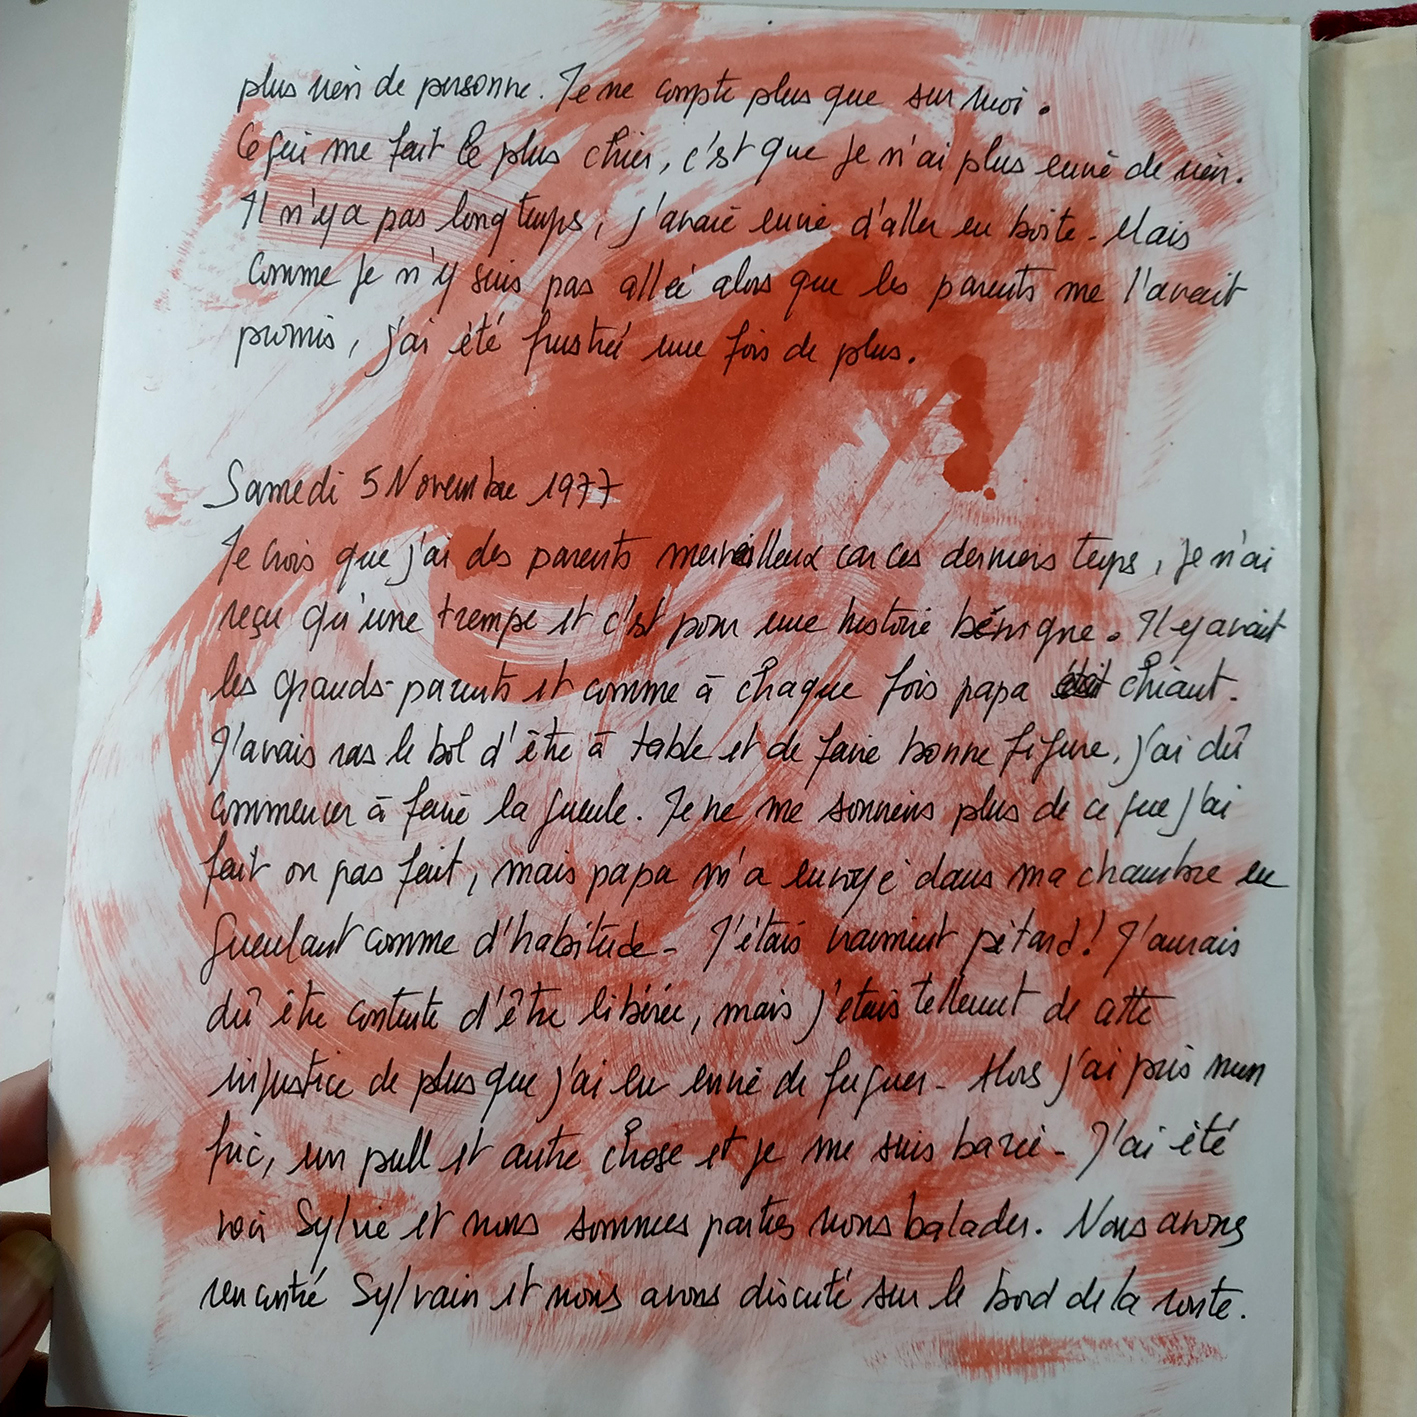 plus rien de personne. Je ne compte plus que sur moi.
Ce qui me fait le plus chier, c'est que je n'ai plus envie de rien.
Il n'y a pas longtemps, j'avais envie d'aller en boîte - Mais
comme je n'y suis pas allée alors que les parents me l'avait
promis, j'ai été frustrée une fois de plus.
Samedi 5 Novembre 1977
Je crois que j'ai des parents merveilleux car ces derniers temps, je n'ai
reçu qu'une trempe et c'est pour une histoire bénigne. Il y avait
les grands-parents et comme à chaque fois papa était chiant.
J'avais ras le bol d'être à table et de faire bonne figure, j'ai dû
commencer à faire la gueule. Je ne me souviens plus de ce que j'ai
fait ou pas fait, mais papa m'a envoyé dans ma chambre en
gueulant comme d'habitude - J'étais vraiment pétard! J'aurais
dû être contente d'être libérée, mais j'étais tellement de cette
injustice de plus que j'ai eu envie de fuguer - Alors j'ai pris mon
fric, un pull et autre chose et je me suis barée - J'ai été
voir Sylvie et nous sommes parties nous balader. Nous avons
rencontré Sylvain et nous avons discuté sur le bord de la route.